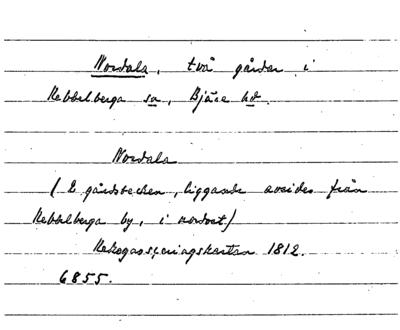 Nordala, två gårdar i
Rebbelberga sn, Bjäre hd.
Nordala
(2 gårdstecken, liggande avsides från
Rebbelberga by, i nordost)
Rekognosceringskartan 1812.
6855.